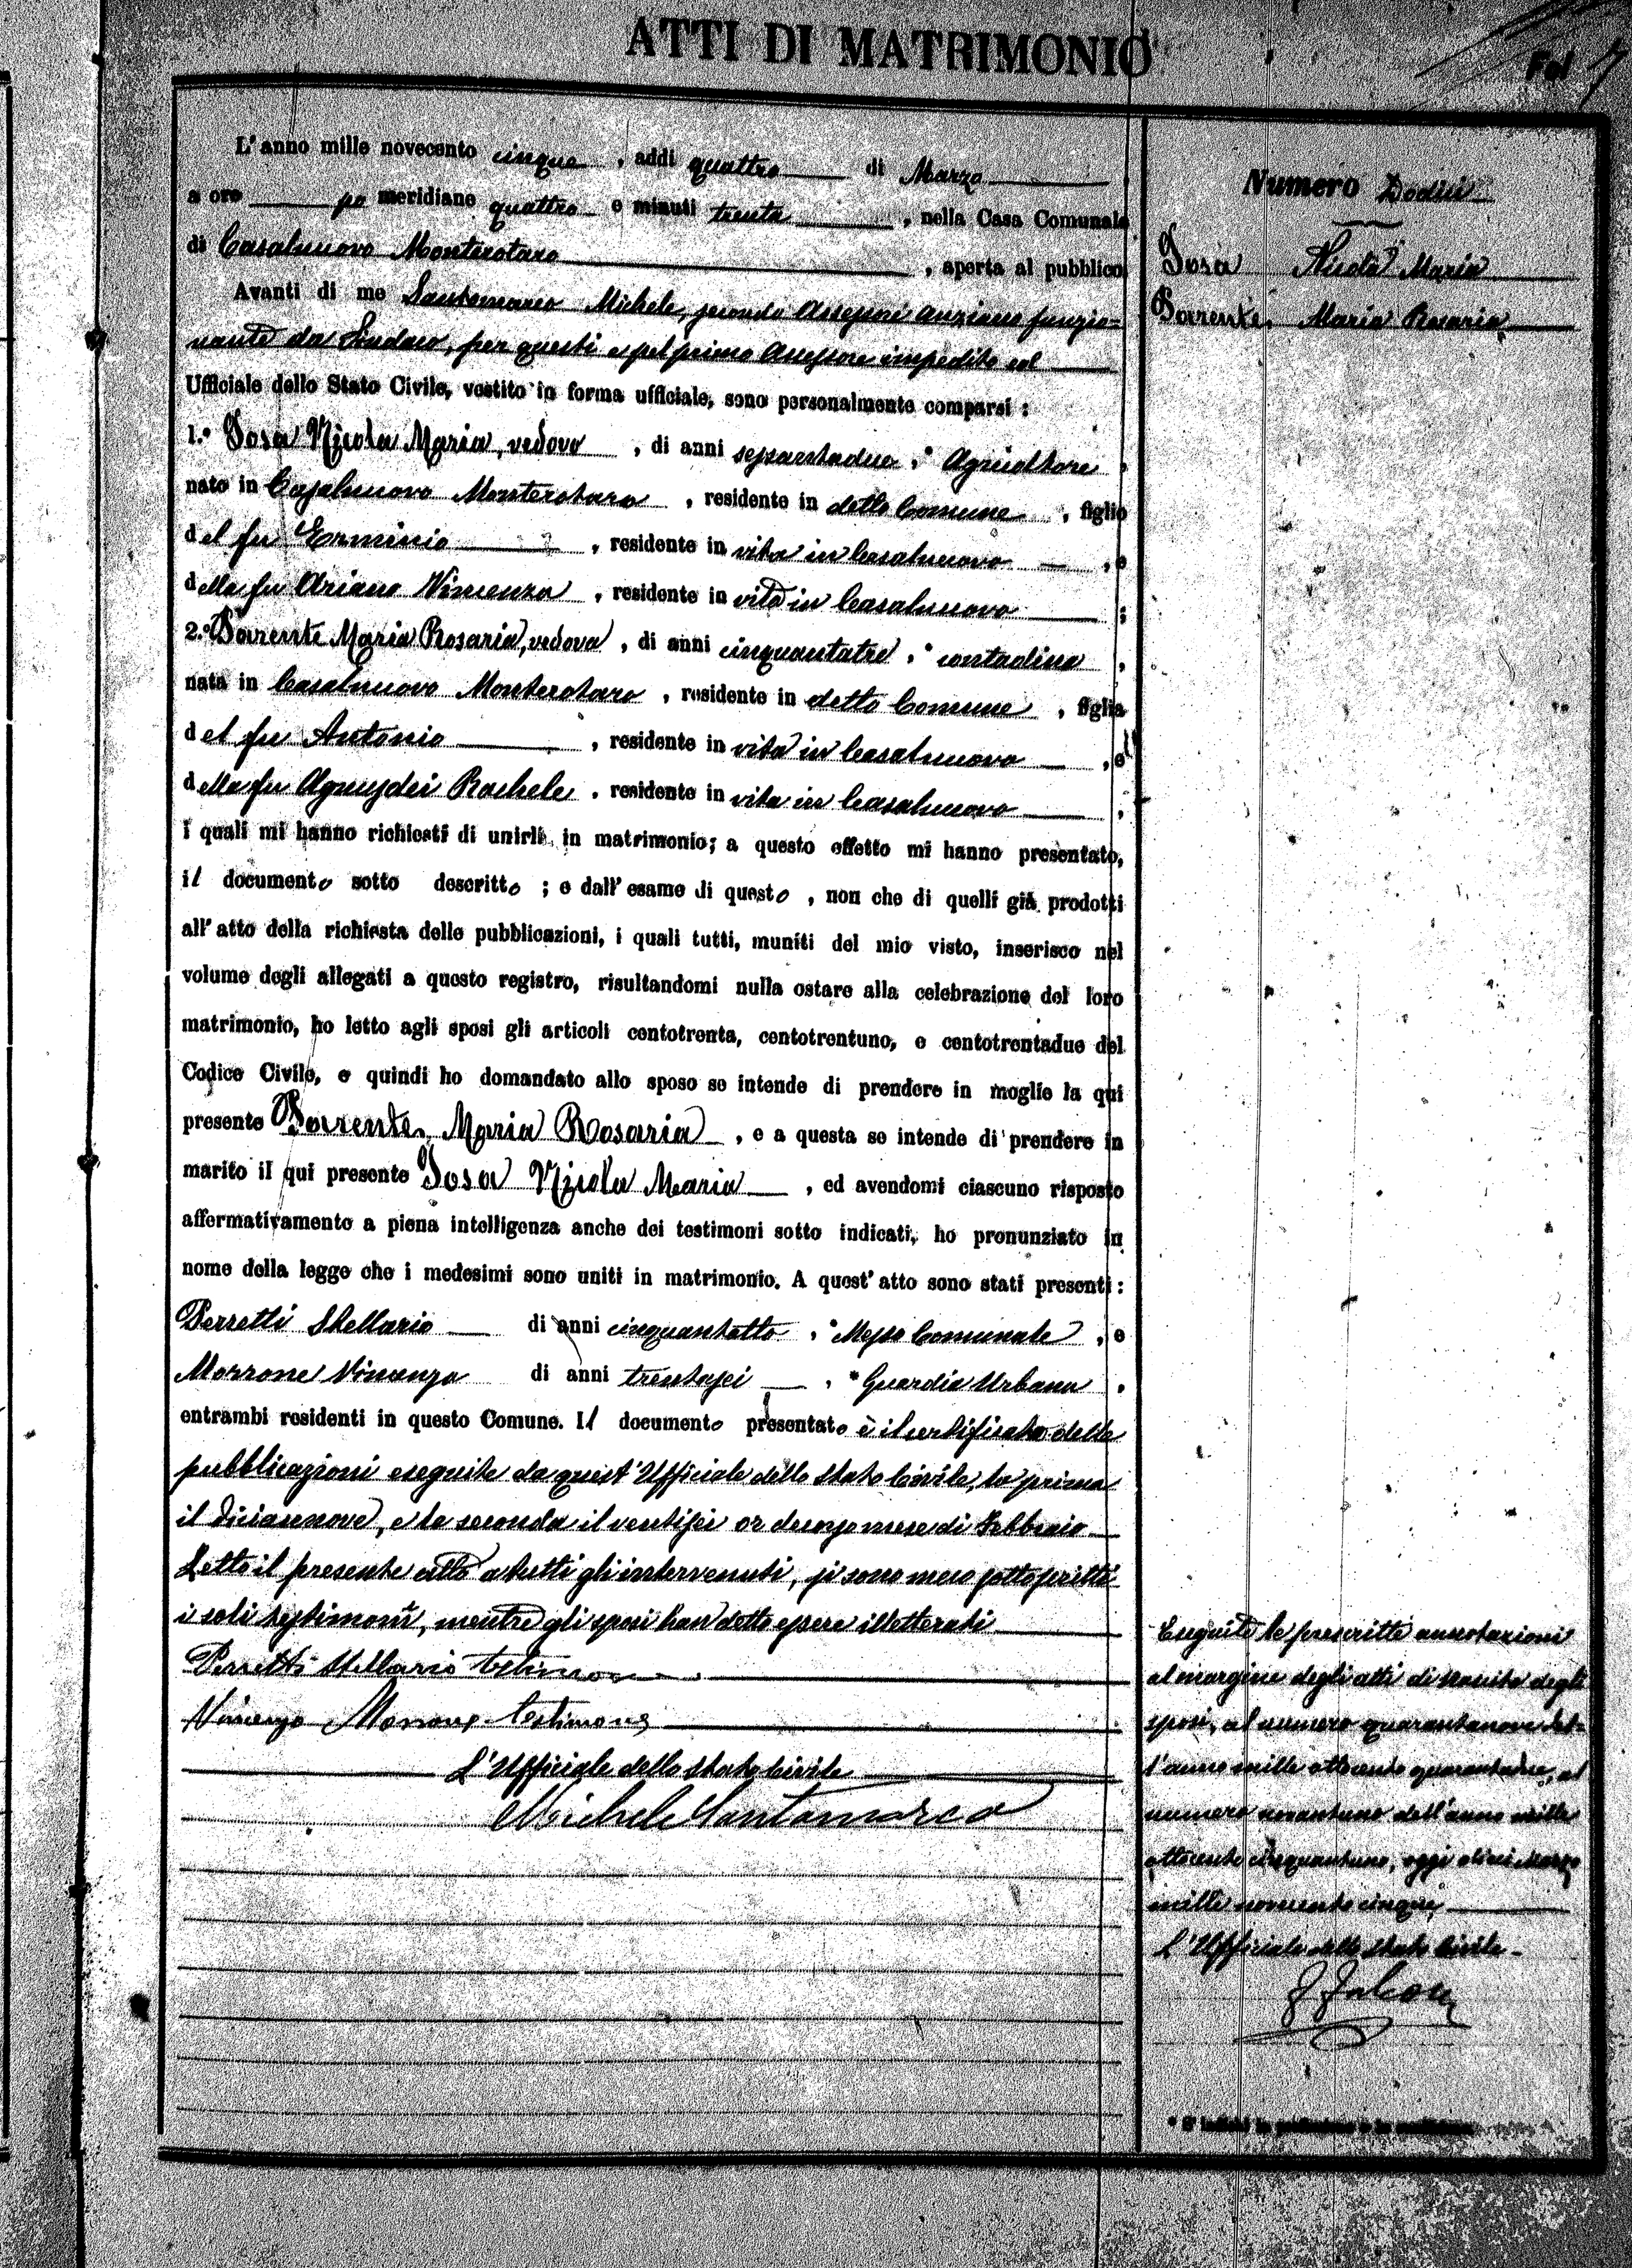 ATTI DI MATRIMONIO
Fol 7
L'anno mille novecento cinque, addì quattro di Marzo
a ore po meridiane quattro e minuti trenta, nella Casa Comunale
di Casalnuovo Monterotaro, aperta al pubblico
Avanti di me Santomarco Michele, secondo Assessore anziano funzio=
nante da Sindaco, per questi e pel primo Assessore impedito ed
Ufficiale dello Stato Civile, vestito in forma ufficiale, sono personalmente comparsi:
1.° Iosa Nicola Maria, vedovo, di anni sessantadue, * Agricoltore,
nato in Casalnuovo Monterotaro, residente in detto Comune, figlio
del fu Erminio, residente in vita in Casalnuovo, e
della fu Ariano Vincenza, residente in vita in Casalnuovo;
2.° Parrente Maria Rosaria, vedova, di anni cinquantatre, * contadina,
nata in Casalnuovo Monterotaro, residente in detto Comune, figlia
del fu Antonio, residente in vita in Casalnuovo, e
della fu Agnusdei Rachele, residente in vita in Casalnuovo;
i quali mi hanno richiesti di unirli in matrimonio; a questo effetto mi hanno presentato,
il documento sotto descritto; e dall'esame di questo, non che di quelli già prodotti
all'atto della richiesta delle pubblicazioni, i quali tutti, muniti del mio visto, inserisco nel
volume degli allegati a questo registro, risultandomi nulla ostare alla celebrazione del loro
matrimonio, ho letto agli sposi gli articoli centotrenta, centotrentuno, e centotrentadue del
Codice Civile, e quindi ho domandato allo sposo se intende di prendere in moglie la qui
presente Parrente Maria Rosaria, e a questa se intende di prendere in
marito il qui presente Iosa Nicola Maria, ed avendomi ciascuno risposto
affermativamente a piena intelligenza anche dei testimoni sotto indicati, ho pronunziato in
nome della legge che i medesimi sono uniti in matrimonio. A quest'atto sono stati presenti:
Perretti Stellario di anni cinquantotto, * Messo Comunale, e
Morrone Vincenzo di anni trentasei, * Guardia Urbana,
entrambi residenti in questo Comune. Il documento presentato è il certificato delle
pubblicazioni eseguite da quest'Ufficiale dello Stato Civile, la prima
il diciannove, e la seconda il ventisei or decorso mese di Febbraio
Letto il presente atto a tutti gli intervenuti, si sono meco sottoscritti
i soli testimoni, mentre gli sposi han detto essere illetterati
Perretti Stellario testimone
Vincenzo Morrone testimone
L'Ufficiale dello Stato Civile
Michele Santomarco
Numero Dodici
Iosa Nicola Maria
Parrente Maria Rosaria
Eseguite le prescritte annotazioni
al margine degli atti di nascita degli
sposi, al numero quarantanove del=
l'anno mille ottocento quarantadue, al
numero novantuno dell'anno mille
ottocento cinquantuno, oggi dieci Marzo
mille novecento cinque
L'Ufficiale dello Stato Civile